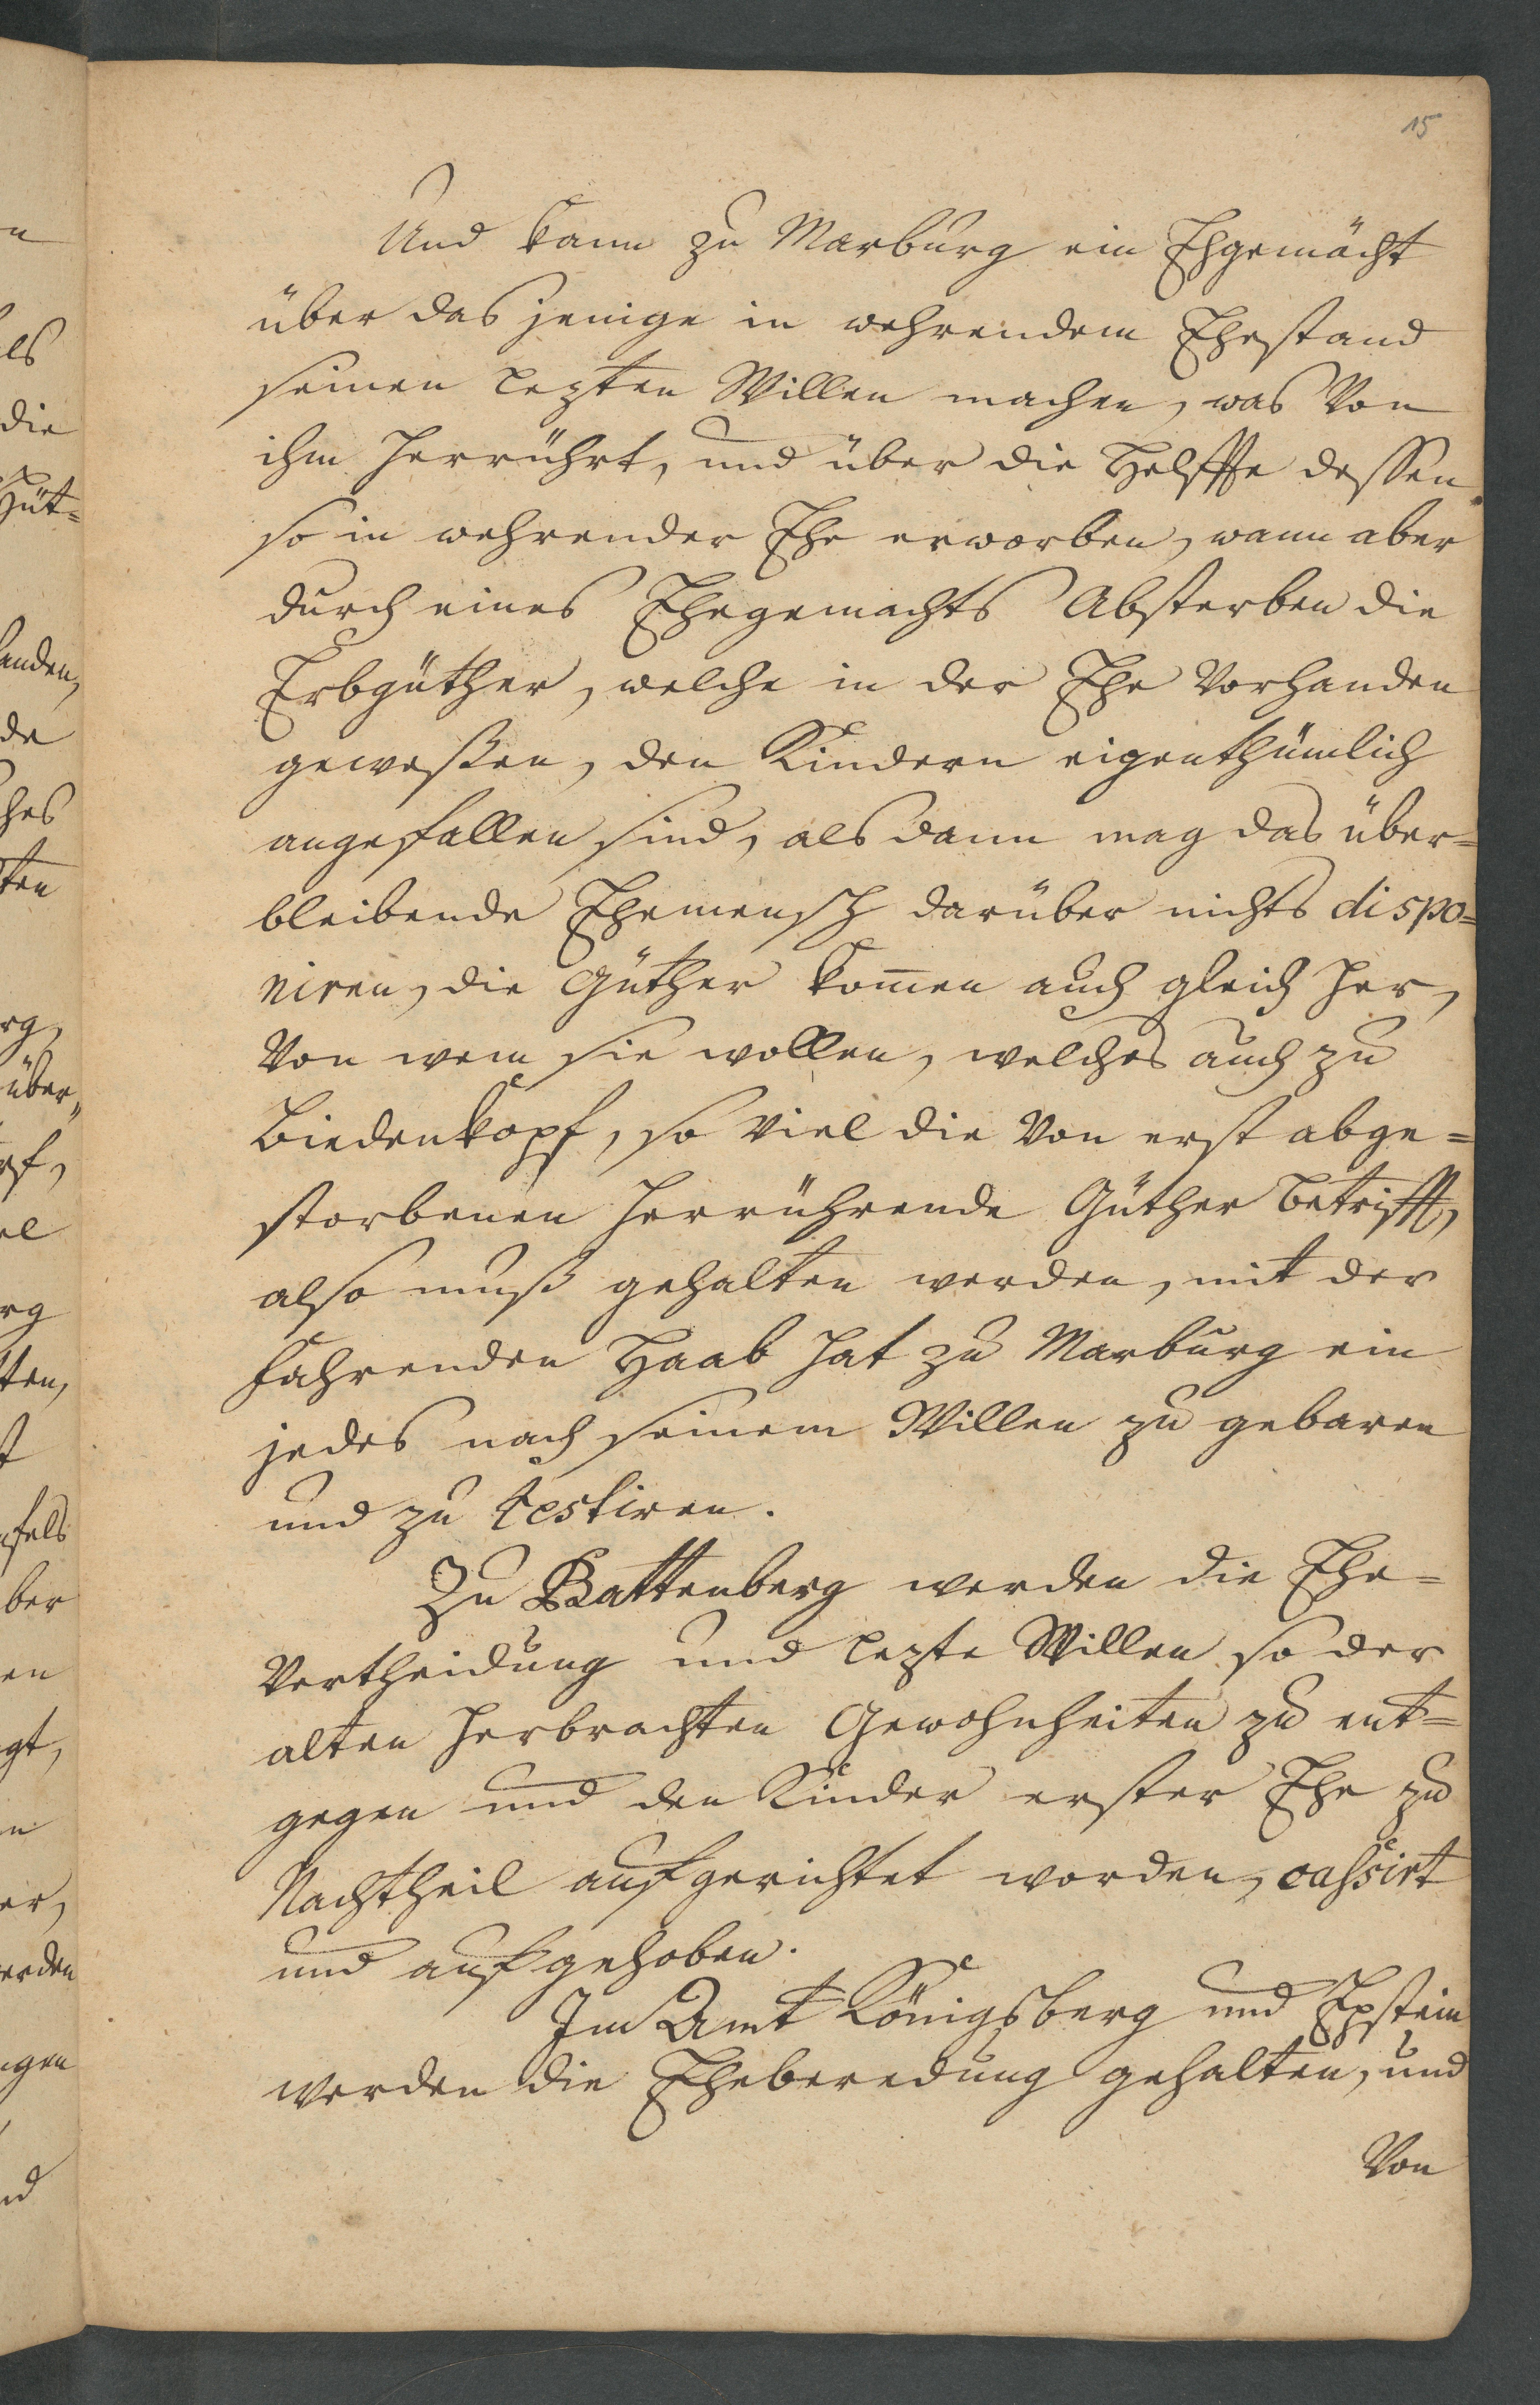 15
Und kann zu Marburg ein Ehgemächt
über das jenige in wehrendem Ehestand
seinen lezten Willen machen, was Von
ihm herrührt, und über die Helffte dessen
so in wehrender Ehe erworben, wann aber
durch eines Ehegemachts Absterben die
Erbgüther, welche in der Ehe Vorhanden
geweßen, den Kindern eigenthümlich
angefallen sind, als dann mag das über=
bleibende Ehemensch darüber nichts dispo=
niren, die Güther kom̅en auch gleich her,
Von wem sie wollen, welches auch zu
Biedenkopf, so Viel die Von erst abge=
storbenen herrührende Güther betrifft,
also muß gehalten werden, mit der
fahrenden Haab hat zu Marburg ein
jedes nach seinem Willen zu gebaren
und zu testiren.
Zu Battenberg werden die Ehe=
Vertheidung und lezte Willen so der
alten herbrachten Gewohnheiten zu ent=
gegen und den Kinder erster Ehe zu
Nachtheil aufgerichtet worden, cassirt
und aufgehoben.
Im Amt Königsberg und Epstein
werden die Eheberedung gehalten, und
Von